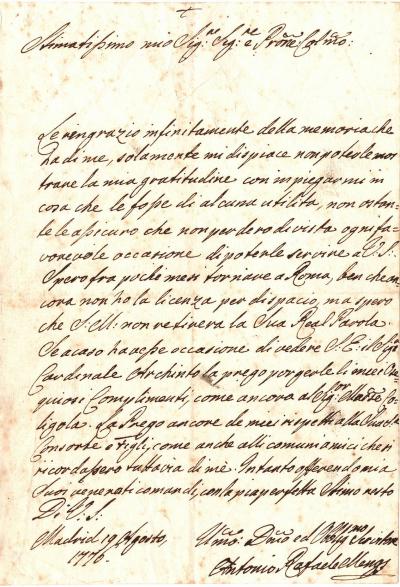 +
Stimatissimo mio Sig:re Sig:re e Prone Colmo:
Le rengrazio infinitamente della memoria che
ha di me, solamente mi dispiace non poterle mos
trare la mia gratitudine con impiegarmi in
cosa che le fosse di alcuna utilita, non ostan-
te le assicuro che non perdero di vista ogni fa-
vorevole occasione di poterle servire a V.S:
Spero fra pochi mesi tornare a Roma, ben che an
cora non ho la licenza per dispacio, ma spero
che S: M: non retirera la Sua Real Parola.
Se acaso havesse occasione di vedere S: E: il Sigr
Cardinale Archinto la prego porgerle li miei Osse
quiosi Complimenti, come ancora al Sigor Marse Ca-
ligola. La Prego ancore de miei rispetti alla Sua Sra
Consorte e Figli, come anche alli comuni amici che si
ricordassero tuttavia di me. Intanto offerendomi a
Suoi venerati comandi, con la piu perfetta Stima resto
Di V.S.
Madrid 19 Agosto,
1776.
Umo: e Dmo ed Obbmo Servitore
Antonio Rafaele Mengs